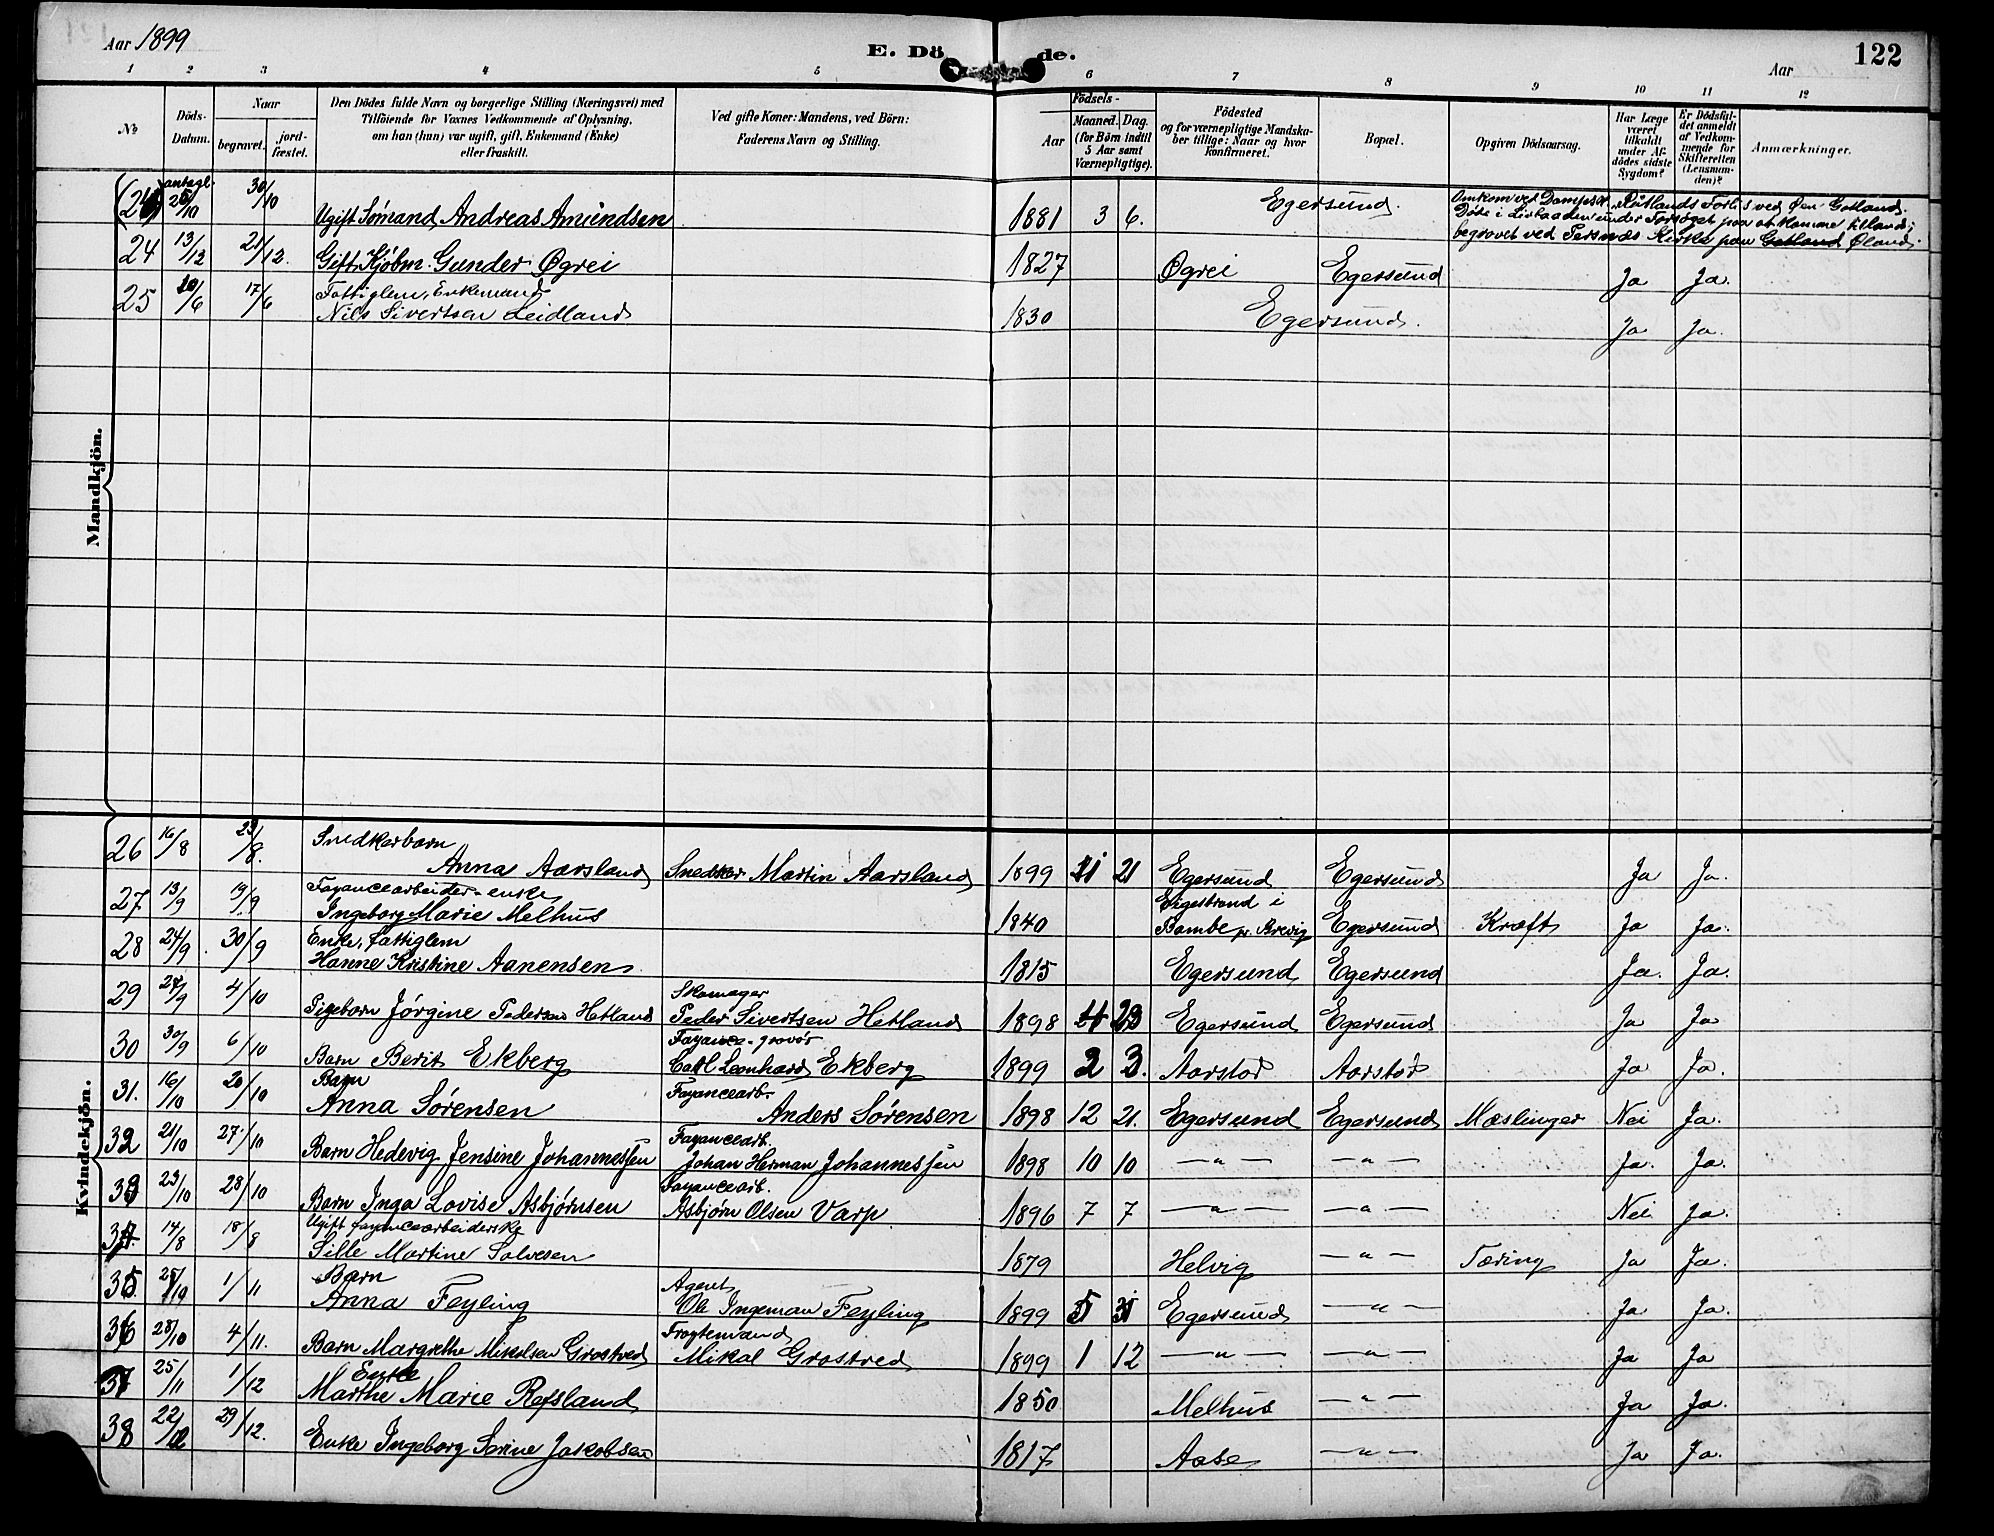 Aar 1899
E. Dö de.
Aar
122
1 2 3 4 5 6 7 8 9 10 11 12
№
Döds-
Datum.
Naar
begravet.
jord-
fæstet.
Den Dödes fulde Navn og borgerlige Stilling (Næringsvei) med
Tilföiende for Voxnes Vedkommende af Oplysning,
om han (hun) var ugift, gift, Enkemand (Enke)
eller fraskilt.
Ved gifte Koner: Mandens, ved Börn:
Faderens Navn og Stilling.
Födsels-
Aar
Maaned. Dag.
(for Börn indtil
5 Aar samt
Værnepligtige).
Födested
og for værnepligtige Mandska-
ber tillige: Naar og hvor
konfirmeret.
Bopæl.
Opgiven Dödsaarsag.
Har Læge
været
tilkaldt
under Af-
dødes sidste
Sygdom?
Er Dödsfal-
det anmeldt
af Vedkom-
mende for
Skifteretten
(Lensman-
den)?
Anmærkninger.
Mandkjön.
antagl. 30/10 Omkom ved Dampsk. Forlis ved Øen Gotland.
Ugift Sømand Andreas Amundsen 1881 3 6. Egersund. Døde i under Forsøget paa at komme tilland;
begravet ved Kirke paa Gotland Øland.
24 13/12 21/12. Gift Kjøbm. Gunder Øgrei 1827 Øgrei Egersund Ja Ja.
25 10/6 17/6 Fattiglem, Enkemand
Nils Sivertsen Leidland 1830 Egersund. Ja Ja.
Kvindekjön.
26 16/8 23/8. Snedkerbarn
Anna Aarsland Snedker Martin Aarsland 1899 21 Egersund Egersund Ja Ja.
27 13/9 19/9 Fayancearbeider-enke
Ingeborg Marie Melhus 1840 i Bamble pr. Brevig Egersund Kræft Ja Ja.
28 24/9 30/9 Enke, fattiglem
Hanne Kristine Aanensen 1815 Egersund Egersund Ja. Ja.
29 27/9 4/10 Pigebarn Jørgine Pedersen Hetland Skomager
Peder Sivertsen Hetland 1898 Egersund Egersund Ja Ja
30 30/9 6/10 Barn Berit Ekberg Fayance-gravør
Carl Leonhard Ekberg 1899 2 3. Aarstad Aarstad Ja Ja.
31. 16/10 20/10 Barn
Anna Sørensen Fayancearb.
Anders Sørensen 1898 12 21. Egersund Egersund Mæslinger Nei Ja.
32 21/10 27/10 Barn Hedevig Jensine Johannessen Fayancearb.
Johan Herman Johannessen 1898 10 10 —„— —„— Ja. Ja.
33 23/10 28/10 Barn Inga Lovise Asbjørnsen Fayancearb.
Asbjørn Olsen Varp 1896 7 7 —„— —„— Nei Ja.
34. 14/8 18/8 Ugift fayancearbeiderske
Sille Martine Salvesen 1879 Helvig —„— Tæring Ja Ja.
35 1/11 Barn
Anna Feyling Agent
Ole Ingeman Feyling 1899 5 Egersund —„— Ja Ja.
36 28/10 4/11. Barn Margrethe Mikalsen Grostved Fragtemand
Mikal Grostved 1899 1 12 —„— —„— Ja Ja
37 25/11 1/12 Enke
Marthe Marie Refsland 1850 Melhus —„— Ja Ja.
38 22/12 29/12. Enke Ingeborg Serine Jakobsen 1817 Aase —„— Ja Ja.